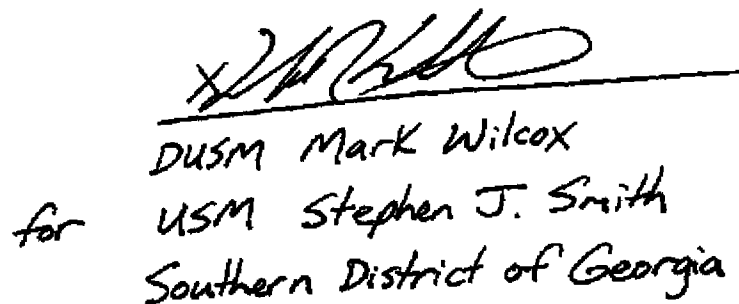 DUSM Mark Wilcox
for USM Stephen J. Smith
Southern District of Georgia